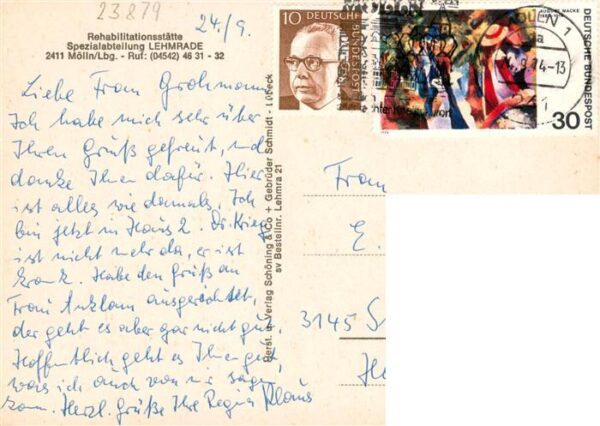 23879
24./9.
Rehabilitationsstätte
Spezialabteilung LEHMRADE
2411 Mölln/Lbg. - Ruf: (04542) 46 31 - 32
Liebe Frau Grohmann
Ich habe mich sehr über
Ihren Gruß gefreut, und
danke Ihnen dafür. Hier
ist alles wie damals. Ich
bin jetzt in Haus 2. Dr. Krieg
ist nicht mehr da, er ist
krank. Habe den Gruß an
Frau Anklam ausgerichtet,
der geht es aber gar nicht gut.
Hoffentlich geht es Ihnen gut,
was ich auch von mir sagen
kann. Herzl. Grüße Ihre Regina Klaus
Herst. u. Verlag Schöning & Co + Gebrüder Schmidt - Lübeck
sv Bestellnr. Lehmra 21
10 DEUTSCHE BUNDESPOST
AUGUST MACKE
DEUTSCHE BUNDESPOST
30
-13
Frau
E.
3145 S